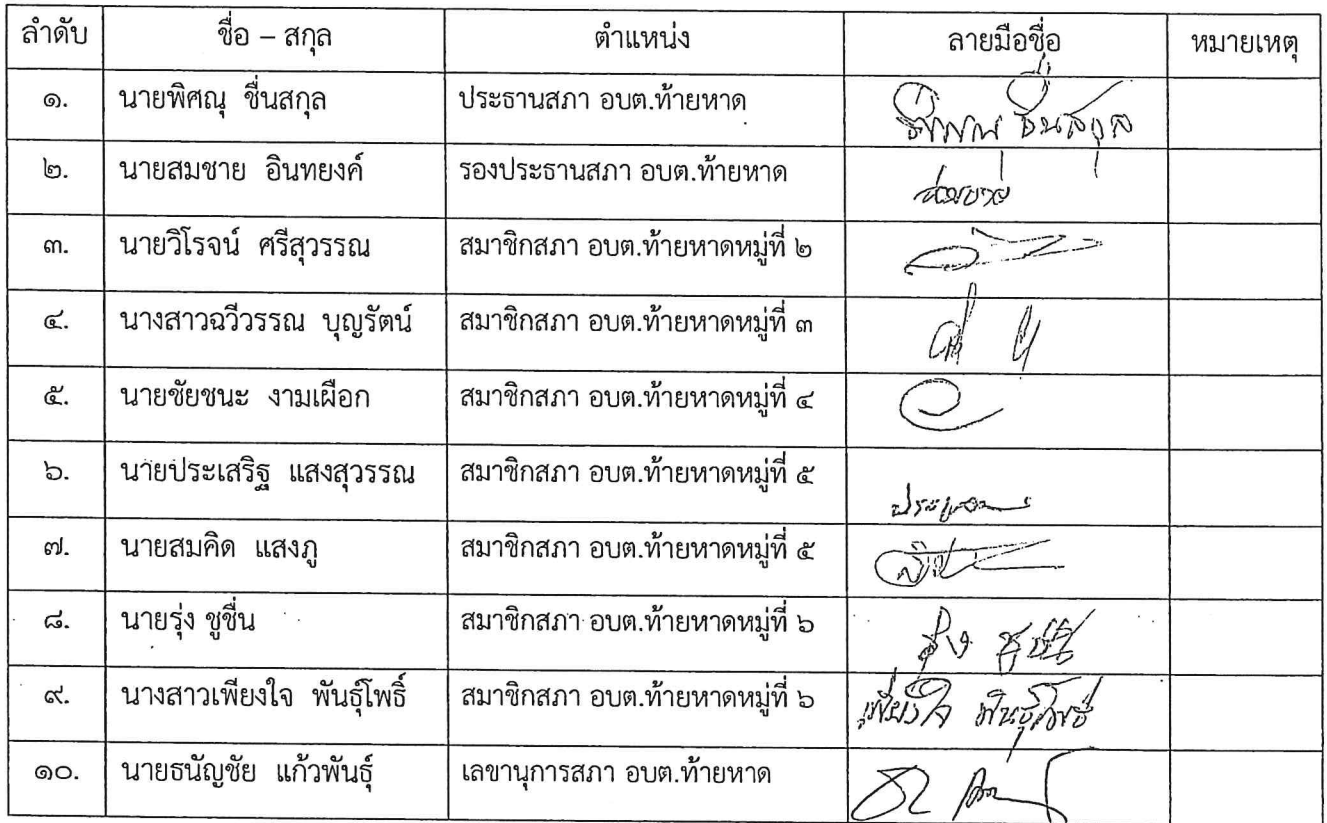 ลำดับ ชื่อ – สกุล ตำแหน่ง ลายมือชื่อ หมายเหตุ
๑. นายพิศณุ ชื่นสกุล ประธานสภา อบต.ท้ายหาด ชื่นสกุล
๒. นายสมชาย อินทยงค์ รองประธานสภา อบต.ท้ายหาด สมชาย
๓. นายวิโรจน์ ศรีสุวรรณ สมาชิกสภา อบต.ท้ายหาดหมู่ที่ ๒
๔. นางสาวฉวีวรรณ บุญรัตน์ สมาชิกสภา อบต.ท้ายหาดหมู่ที่ ๓
๕. นายชัยชนะ งามเผือก สมาชิกสภา อบต.ท้ายหาดหมู่ที่ ๔
๖. นายประเสริฐ แสงสุวรรณ สมาชิกสภา อบต.ท้ายหาดหมู่ที่ ๕
๗. นายสมคิด แสงภู สมาชิกสภา อบต.ท้ายหาดหมู่ที่ ๕
๘. นายรุ่ง ชูชื่น สมาชิกสภา อบต.ท้ายหาดหมู่ที่ ๖ รุ่ง ชูชื่น
๙. นางสาวเพียงใจ พันธุ์โพธิ์ สมาชิกสภา อบต.ท้ายหาดหมู่ที่ ๖ เพียงใจ พันธุ์โพธิ์
๑๐. นายธนัญชัย แก้วพันธุ์ เลขานุการสภา อบต.ท้ายหาด